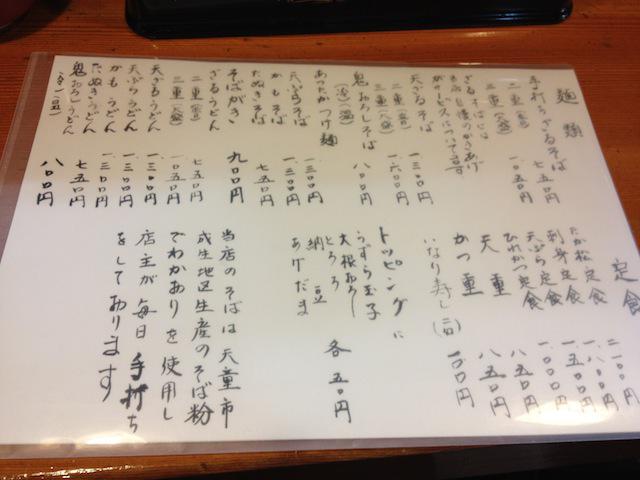 麺類
手打ちざるそば 七五〇円
二重 一、〇五〇円
三重
ざるそばには
当店自慢のかきあげ
がサービスについてます
天ざるそば 一、三〇〇円
二重 一、六〇〇円
三重
鬼おろしそば 八〇〇円
(冷)(温)
あったかつけ麺
天ぷらそば 一、三〇〇円
かもそば 一、三〇〇円
たぬきそば 七五〇円
そばがき 九〇〇円
ざるうどん 七五〇円
二重 一、〇五〇円
三重
天ざるうどん 一、三〇〇円
天ぷらうどん 一、三〇〇円
かもうどん 一、三〇〇円
たぬきうどん 七五〇円
鬼おろしうどん 八〇〇円
(冷)(温)
定食
たか松定食 二、一〇〇円
刺身定食 一、八〇〇円
天ぷら定食 一、五〇〇円
ひれかつ定食 一、〇〇〇円
天重 八五〇円
かつ重 八五〇円
いなり寿し(二ヶ) 一〇〇円
トッピングに
うずら玉子
大根おろし
とろろ
納豆
あげだま
各五〇円
当店のそばは天童市
成生地区生産のそば粉
でわかおりを使用し
店主が毎日手打ち
をしております